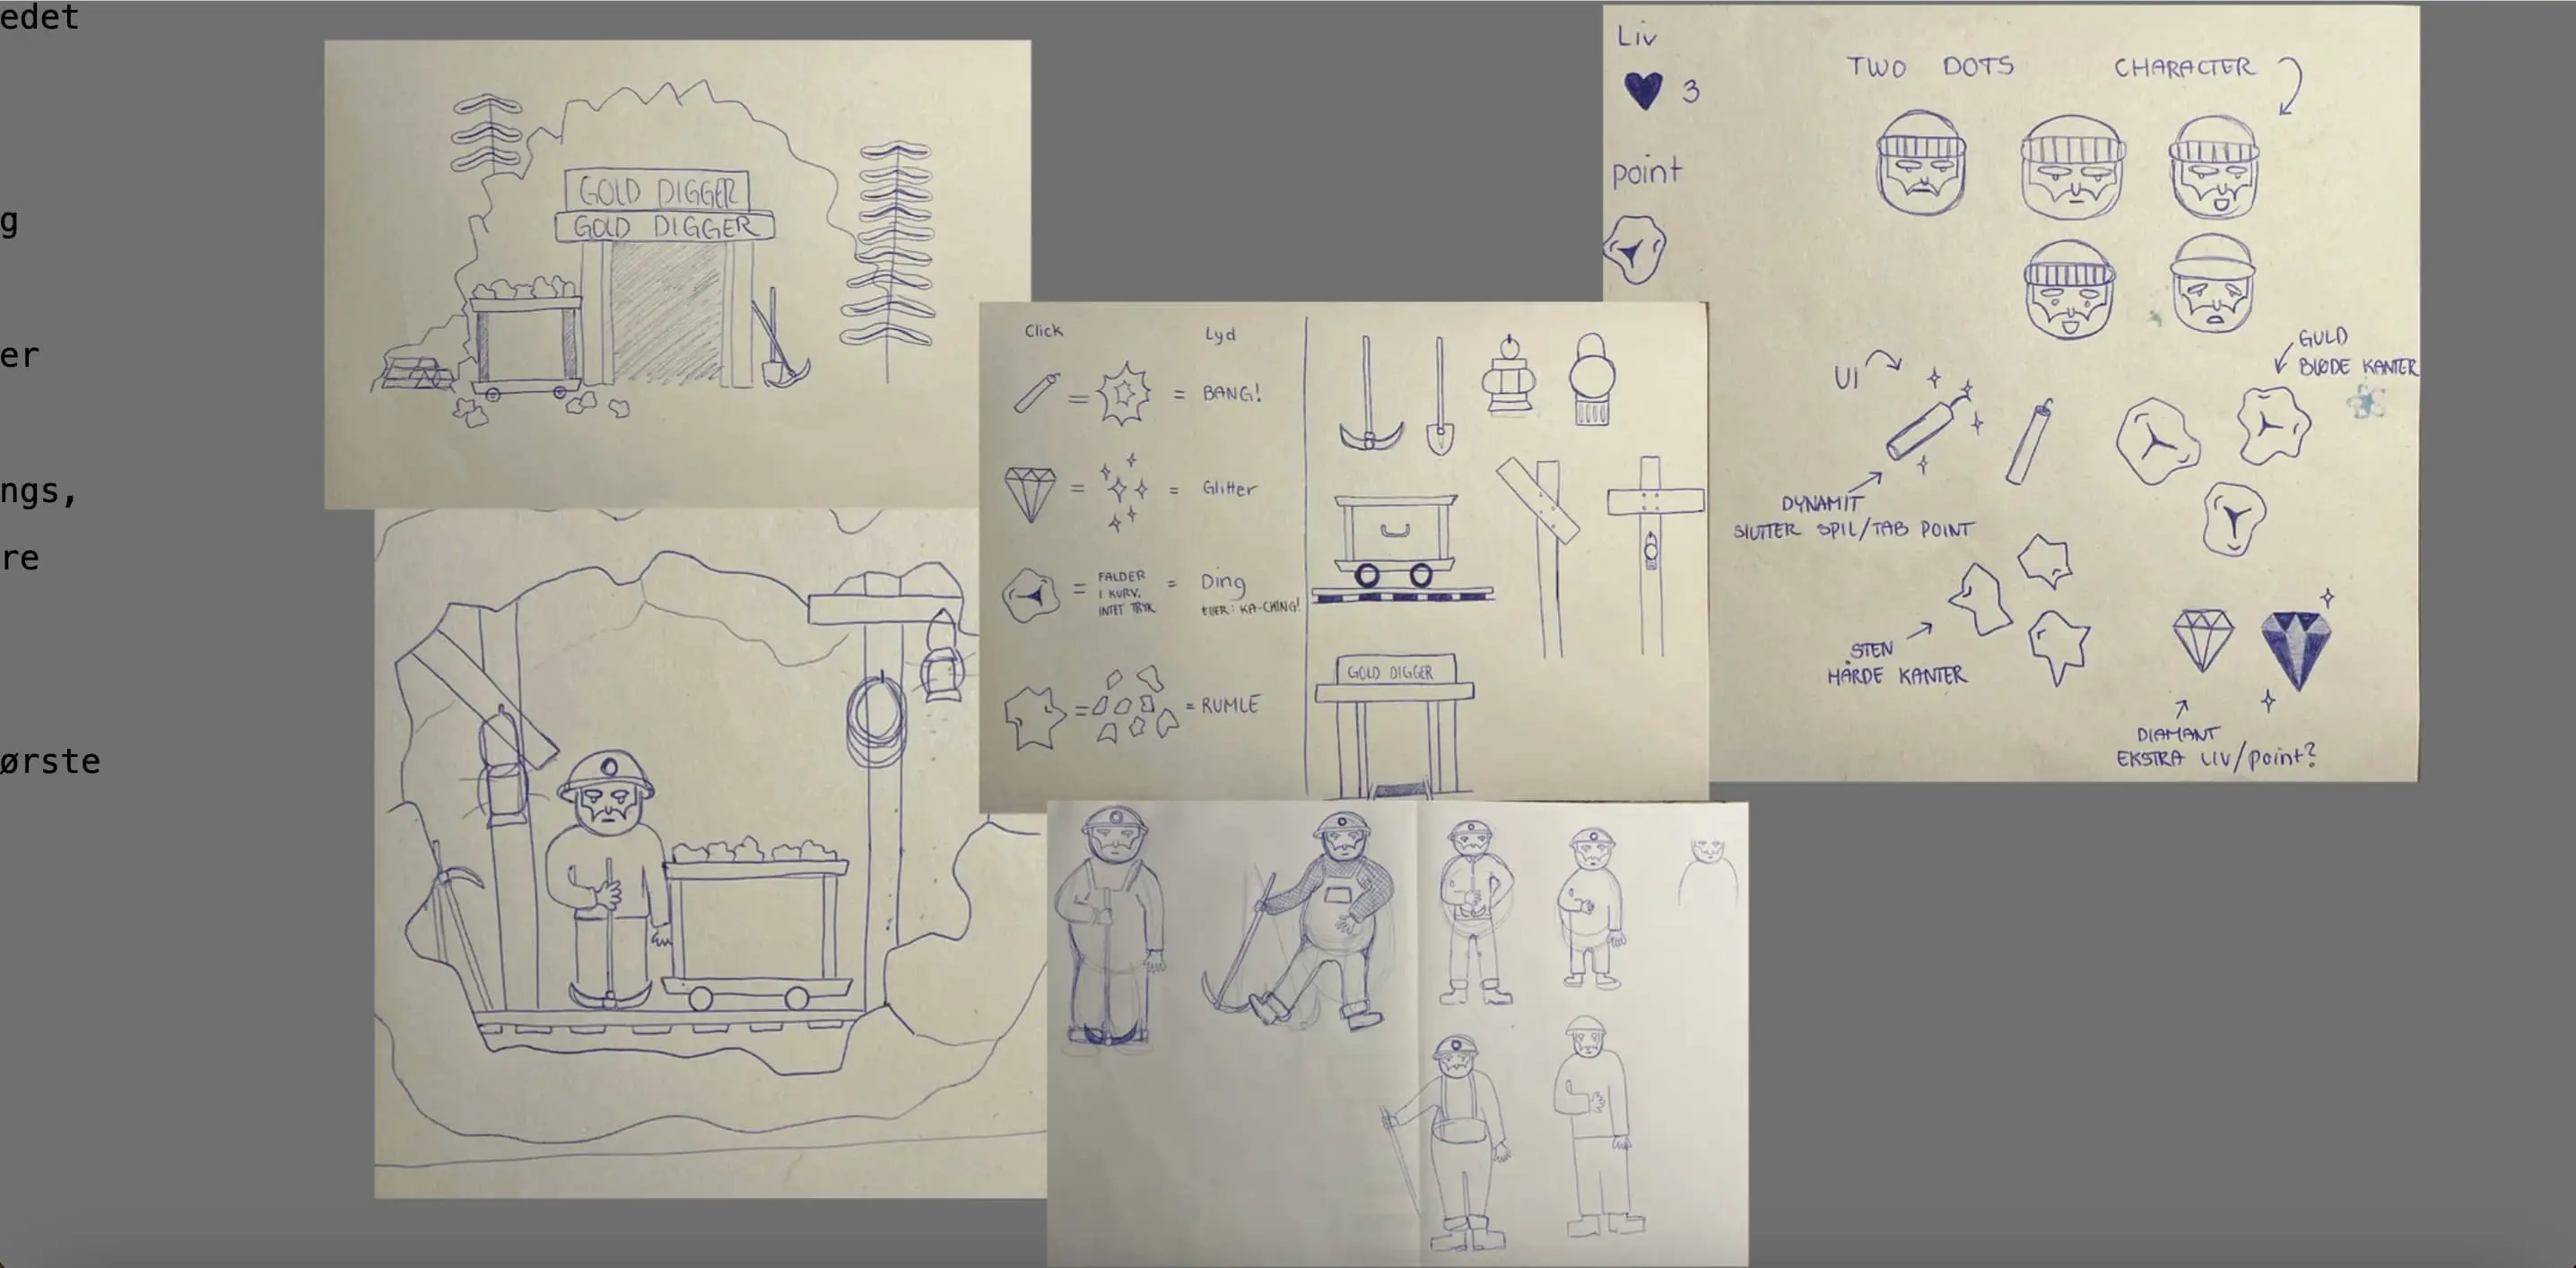 edet
g
er
ngs,
re
ørste
GOLD DIGGER
GOLD DIGGER
Click
Lyd
= = BANG!
= = Glitter
= FALDER
I KURV.
INTET TRYK
= Ding
ELLER: KA-CHING!
= = RUMLE
GOLD DIGGER
Liv
3
point
TWO DOTS CHARACTER
UI
GULD
BLØDE KANTER
DYNAMIT
SLUTTER SPIL/TAB POINT
STEN
HÅRDE KANTER
DIAMANT
EKSTRA LIV/point?